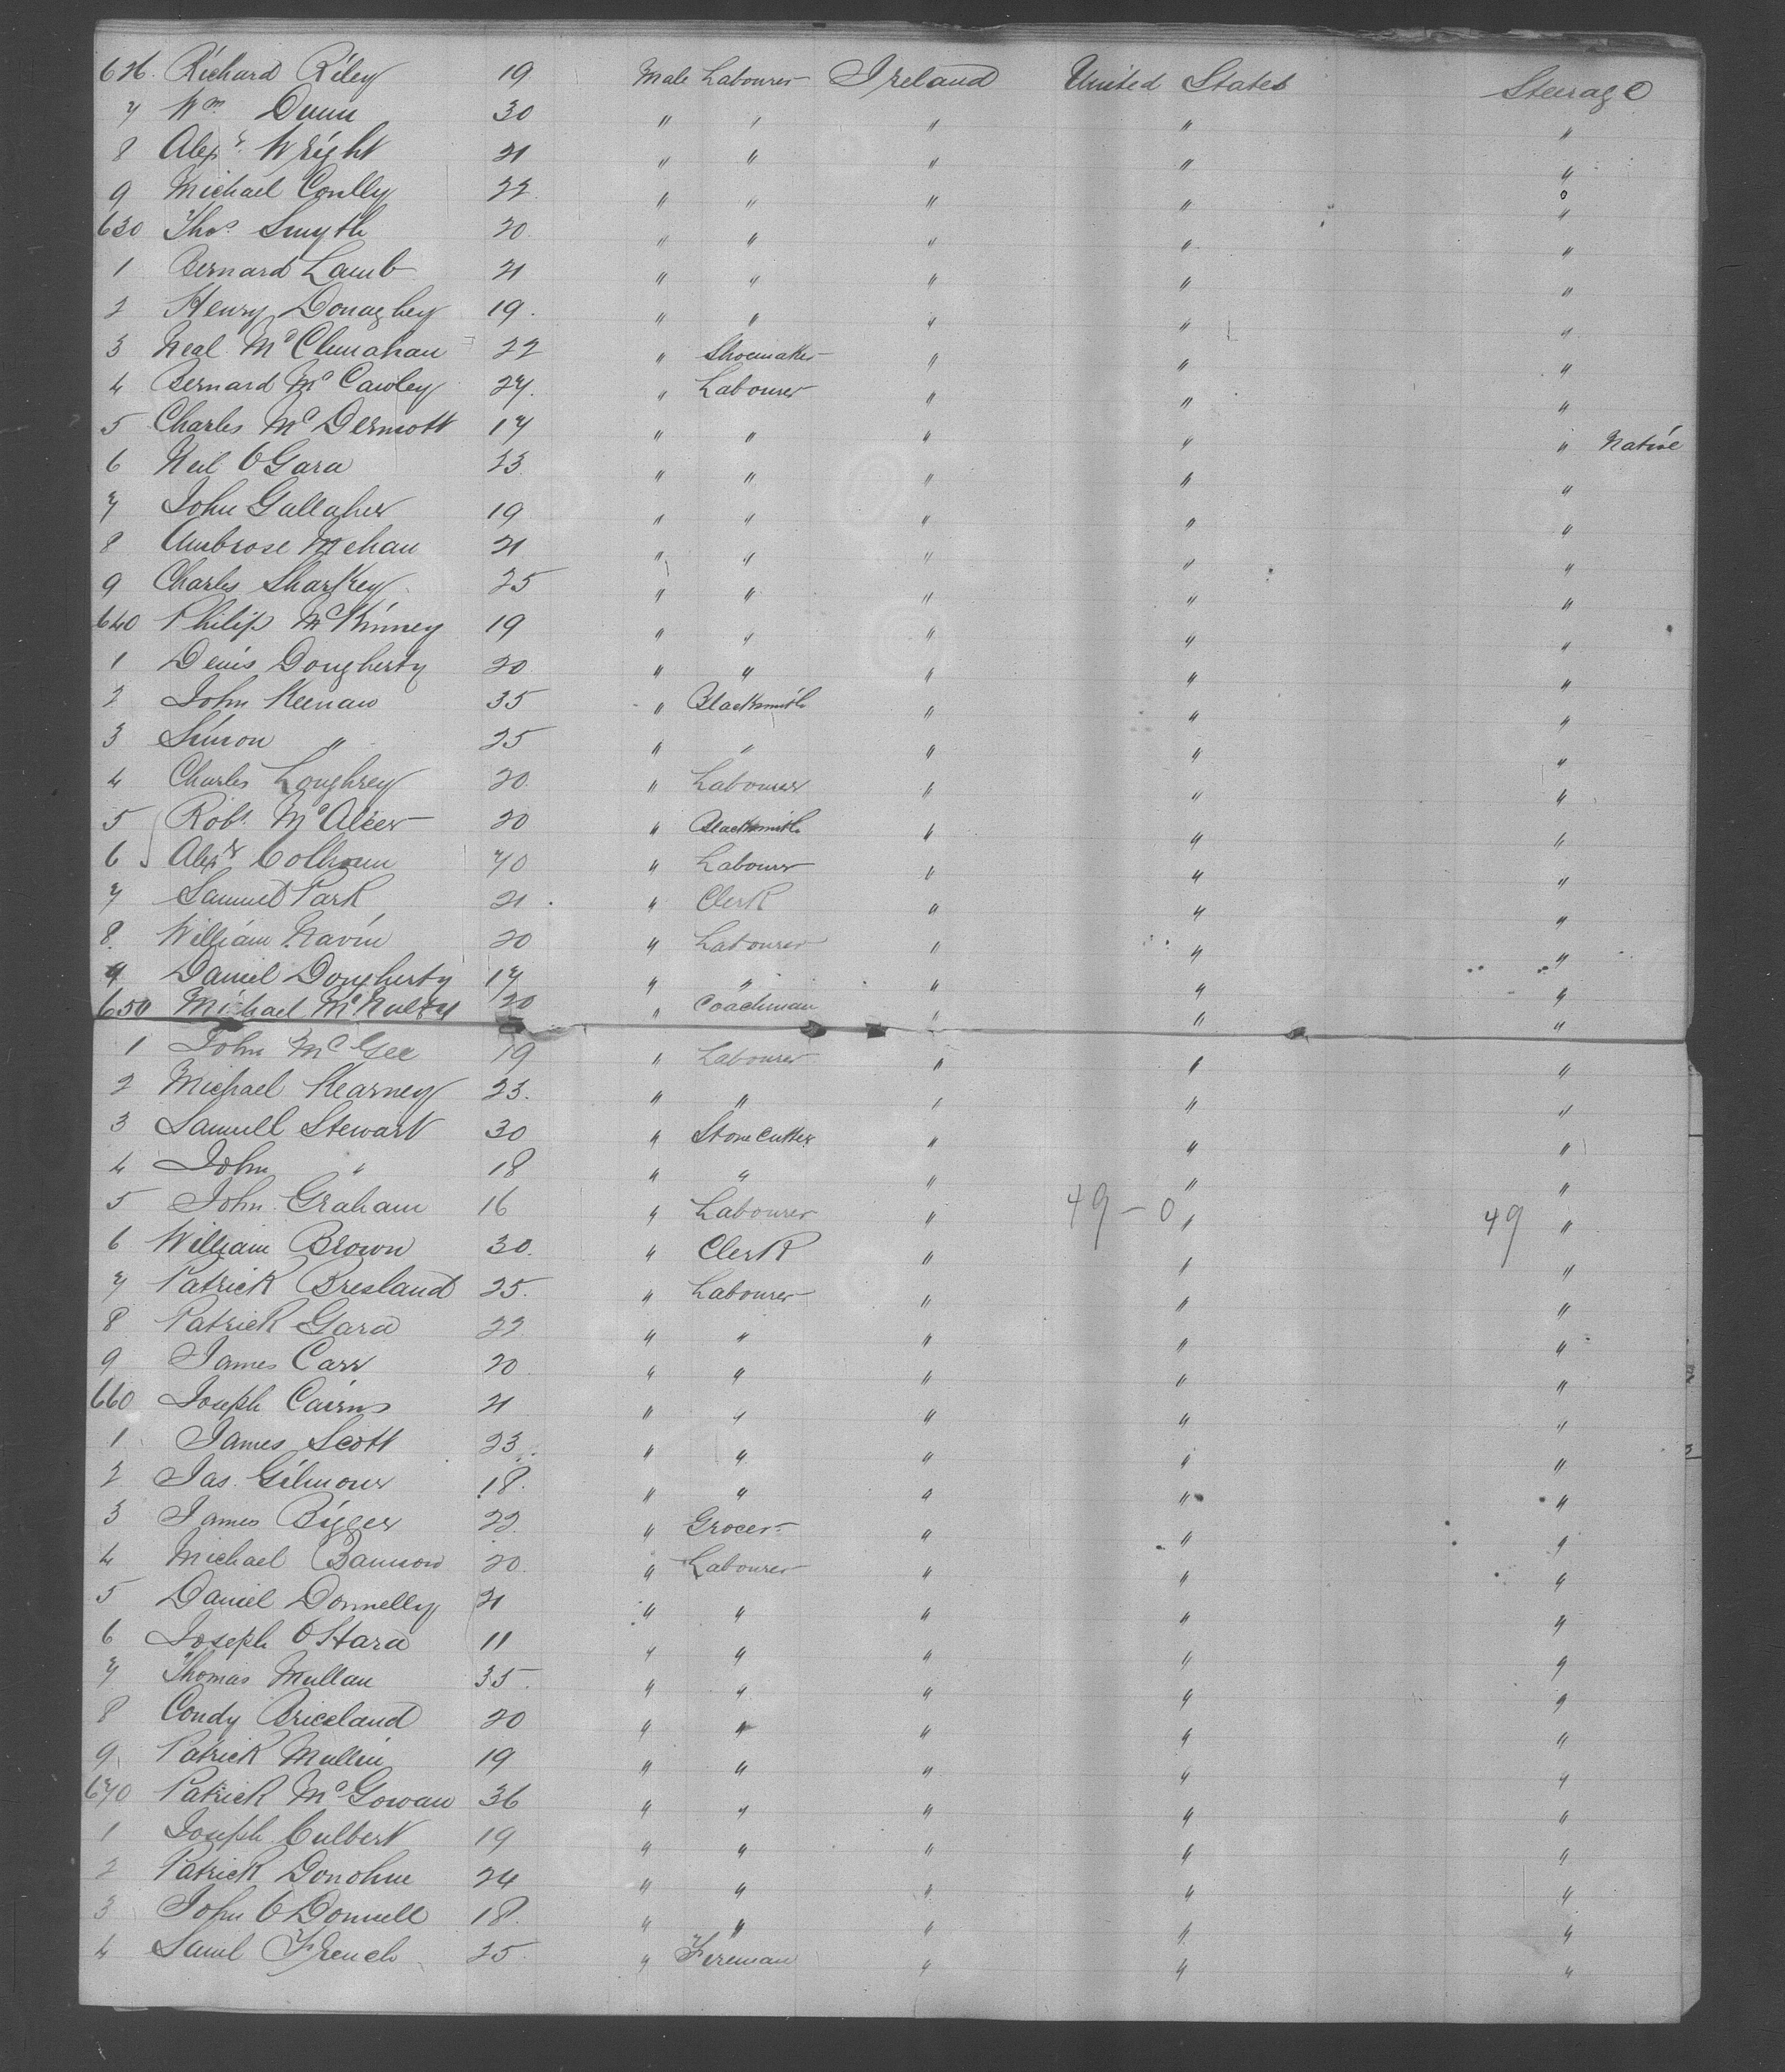 626. Richard Riley 19 Male Labourer Ireland United States Steerage
7 Wm Dunn 30 " " " " "
8 Alexr Wright 21 " " " " "
9 Michael Conlly 22 " " " " "
630 Thos. Smyth 20 " " " " "
1 Bernard Lamb 21 " " " " "
2 Henry Donaghey 19. " " " " "
3 Neal McClenahan 22 " Shoemaker " " "
4 Bernard McCawley 27. " Labourer " " "
5 Charles McDermott 17 " " " " " Native
6 Neil O'Gara 23 " " " " "
7 John Gallagher 19 " " " " "
8 Ambrose Mehan 21 " " " " "
9 Charles Sharkey 25 " " " " "
640 Philip McKinney 19 " " " " "
1 Denis Dougherty 20 " " " " "
2 John Keenan 35 " Blacksmith " " "
3 Simon " 25 " " " " "
4 Charles Loughrey 20 " Labourer " " "
5 Robt. McAleer 20 " Blacksmith " " "
6 Alexr Colhoun 70 " Labourer " " "
7 Samuel Park 21 " Clerk " " "
8. William Navin 20 " Labourer " " "
9 Daniel Dougherty 17 " " " " "
650 Michael McNulty 20 " Coachman " " "
1 John McGee 19 " Labourer " " "
2 Michael Kearney 23. " " " " "
3 Samuell Stewart 30 " Stone Cutter " " "
4 John " 18 " " " " "
5 John Graham 16 " Labourer " 49-0 " 49 "
6 William Brown 30. " Clerk " " "
7 Patrick Bresland 25. " Labourer " " "
8 Patrick Gara 22 " " " " "
9 James Carr 20 " " " " "
660 Joseph Cairns 21 " " " " "
1 James Scott 23 " " " " "
2 Jas. Gilmour 18. " " " " "
3 James Bigger 22 " Grocer " " "
4 Michael 20 " Labourer " " "
5 Daniel Donnelly 21 " " " " "
6 Joseph O'Hara 11 " " " " "
7 Thomas Mullan 35. " " " " "
8 Condy Briceland 20 " " " " "
9 Patrick Mullin 19 " " " " "
670 Patrick McGowan 36 " " " " "
1 Joseph Culbert 19 " " " " "
2 Patrick Donohue 24 " " " " "
3 John O'Donnell 18. " " " " "
4 Saml French 25. " Fireman " " "